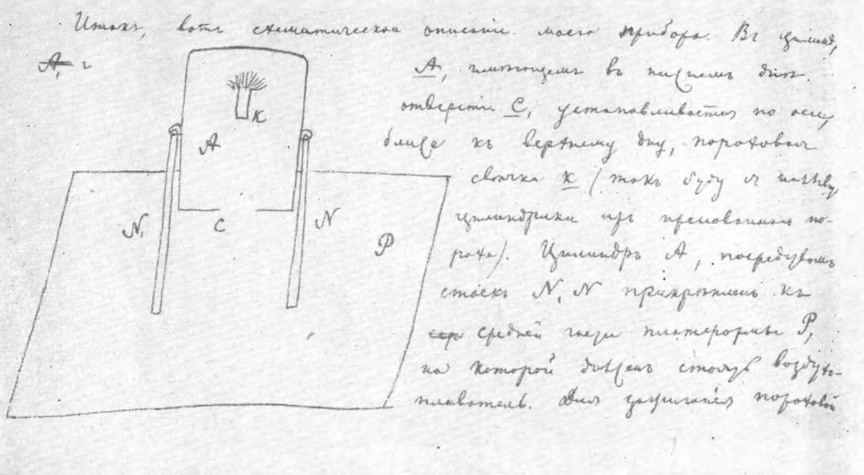 Итакъ, вотъ схематическое описаніе моего прибора. Въ цилинд,
А, г
А, имѣющемъ въ нижнемъ днѣ
отверстіе С, устанавливается по оси,
ближе къ верхнему дну, пороховая
свѣчка К (такъ буду я назыв
цилиндрики изъ прессованнаго по-
роха). Цилиндръ А, посредствомъ
стоекъ N, N прикрѣпленъ къ
средней части платформы Р,
на которой долженъ стоять воздухо-
плаватель. Для зажиганія пороховой
К
А
N,
С
N
Р